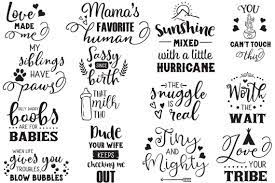 Love
MADE
me
Mama's
FAVORITE
human
Sunshine
MIXED
with a little
HURRICANE
YOU
CAN'T TOUCH
this
MY
siblings
HAVE
paws
Sassy
since
BIRTH
boobs
ARE FOR
BABIES
THAT
milk
THO
THE
snuggle
is
real
Worth
THE
WAIT
WHEN LIFE
gives you
TROUBLES
BLOW BUBBLES
Dude
YOUR WIFE
KEEPS
CHECKING ME
out
Tiny
and
Mighty
LOVE
your
TRIBE